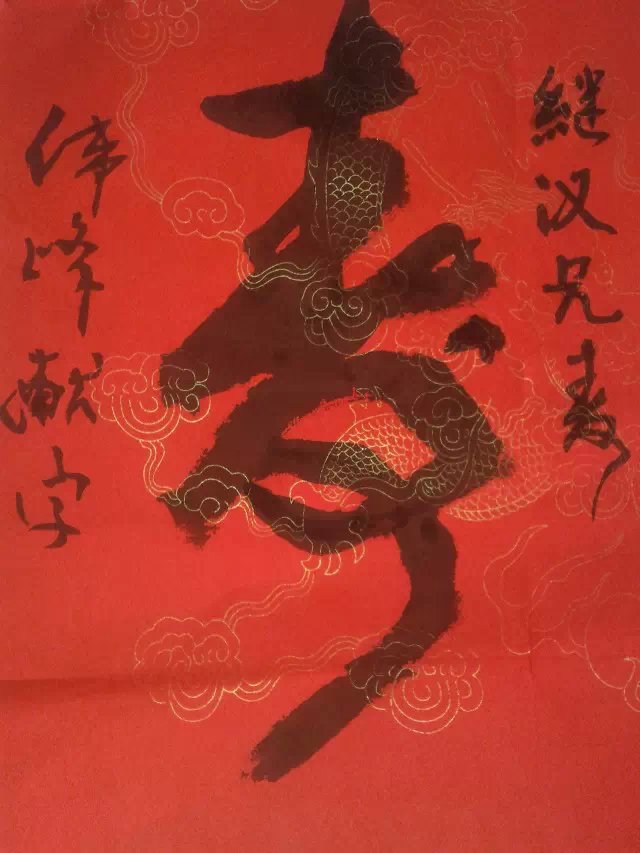 継汉兄寿
寿
伟峰献字